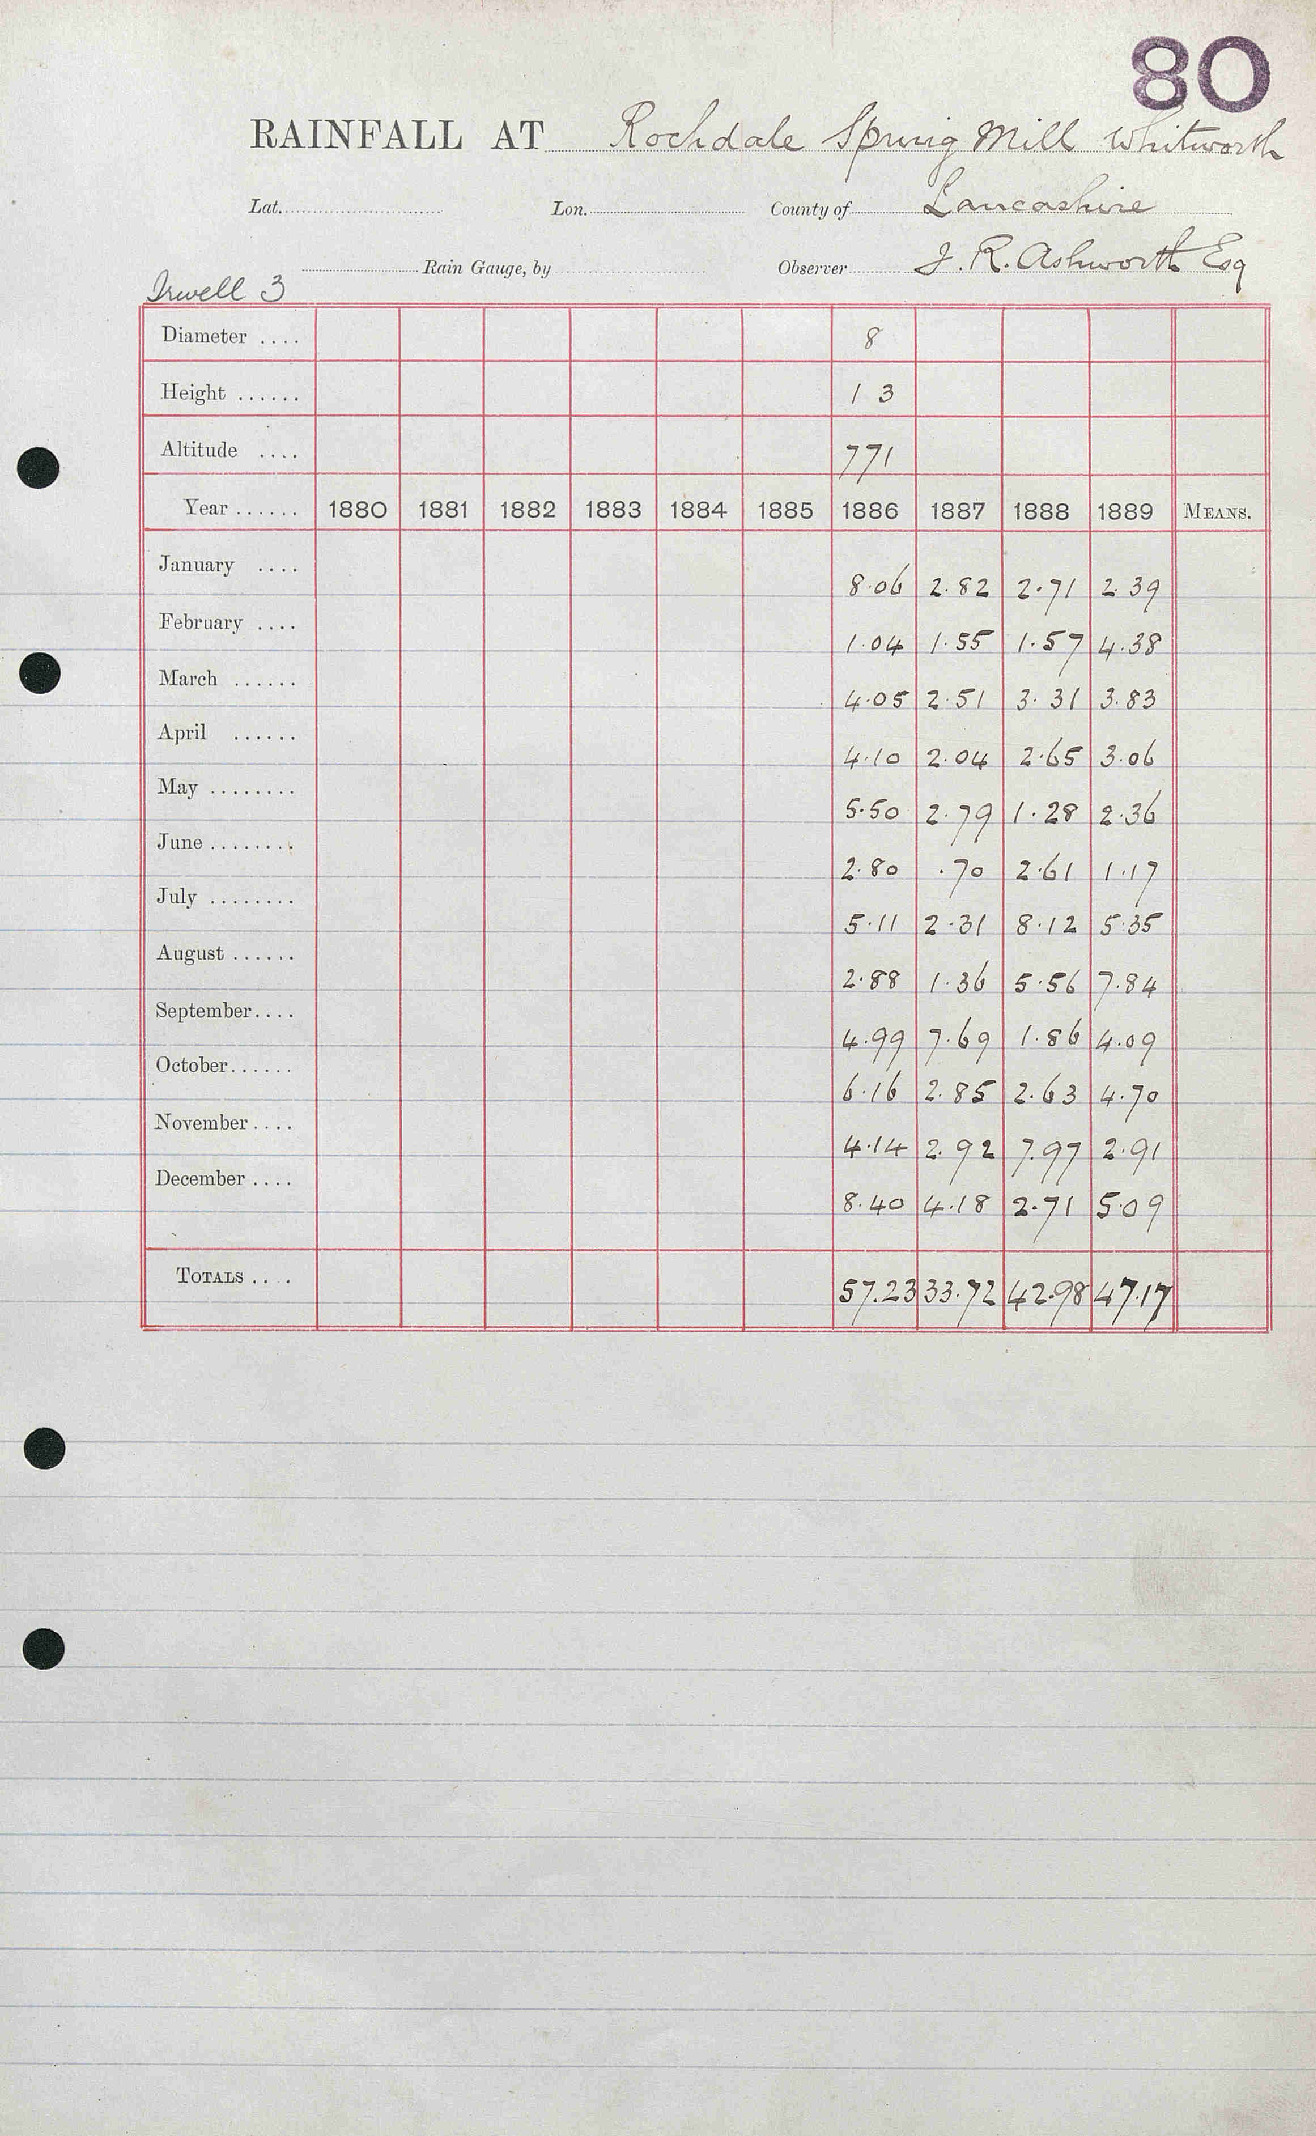 80
RAINFALL AT Rochdale Spring Mill Whitworth
Lat. Lon. County of Lancashire
Rain Gauge, by Observer J. R. Ashworth Esq
Irwell 3
Diameter .... 8
Height ...... 1 3
Altitude .... 771
Year ...... 1880 1881 1882 1883 1884 1885 1886 1887 1888 1889 MEANS.
January .... 8.06 2.82 2.71 2.39
February .... 1.04 1.55 1.57 4.38
March ...... 4.05 2.51 3.31 3.83
April ...... 4.10 2.04 2.65 3.06
May ........ 5.50 2.79 1.28 2.36
June ........ 2.80 .70 2.61 1.17
July ........ 5.11 2.31 8.12 5.35
August ...... 2.88 1.36 5.56 7.84
September.... 4.99 7.69 1.86 4.09
October...... 6.16 2.85 2.63 4.70
November.... 4.14 2.92 7.97 2.91
December .... 8.40 4.18 2.71 5.09
TOTALS .... 57.23 33.72 42.98 47.17